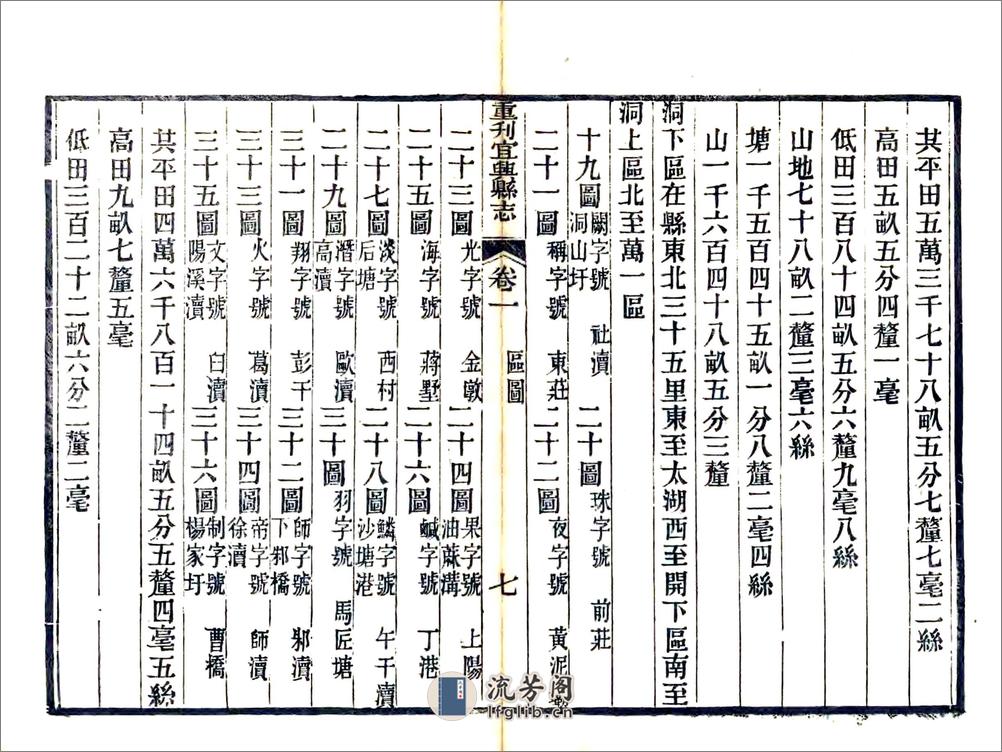 其平田五萬三千七十八畝五分七釐七毫二絲
高田五畝五分四釐一毫
低田三百八十四畝五分六釐九毫八絲
山地七十八畝二釐三毫六絲
塘一千五百四十五畝一分八釐二毫四絲
山一千六百四十八畝五分三釐
洞下區在縣東北三十五里東至太湖西至開下區南至
洞上區北至萬一區
十九圖 闕字號 社瀆 洞山圩 二十圖 珠字號 前莊
二十一圖 稱字號 東莊 二十二圖 夜字號 黃泥
重刋宜興縣志 卷一 區圖 七
二十三圖 光字號 金墩 二十四圖 果字號 上陽 油蔴溝
二十五圖 海字號 蔣墅 二十六圖 鹹字號 丁港
二十七圖 淡字號 西村 后塘 二十八圖 鱗字號 午千瀆 沙塘港
二十九圖 潛字號 歐瀆 高瀆 三十圖 羽字號 馬匠塘
三十一圖 翔字號 彭干 三十二圖 師字號 邾瀆 下邾橋
三十三圖 火字號 葛瀆 三十四圖 帝字號 師瀆 徐瀆
三十五圖 文字號 臼瀆 陽溪瀆 三十六圖 制字號 曹橋 楊家圩
其平田四萬六千八百一十四畝五分五釐四毫五絲
高田九畝七釐五毫
低田三百二十二畝六分二釐二毫
流芳阁
lfglib.cn